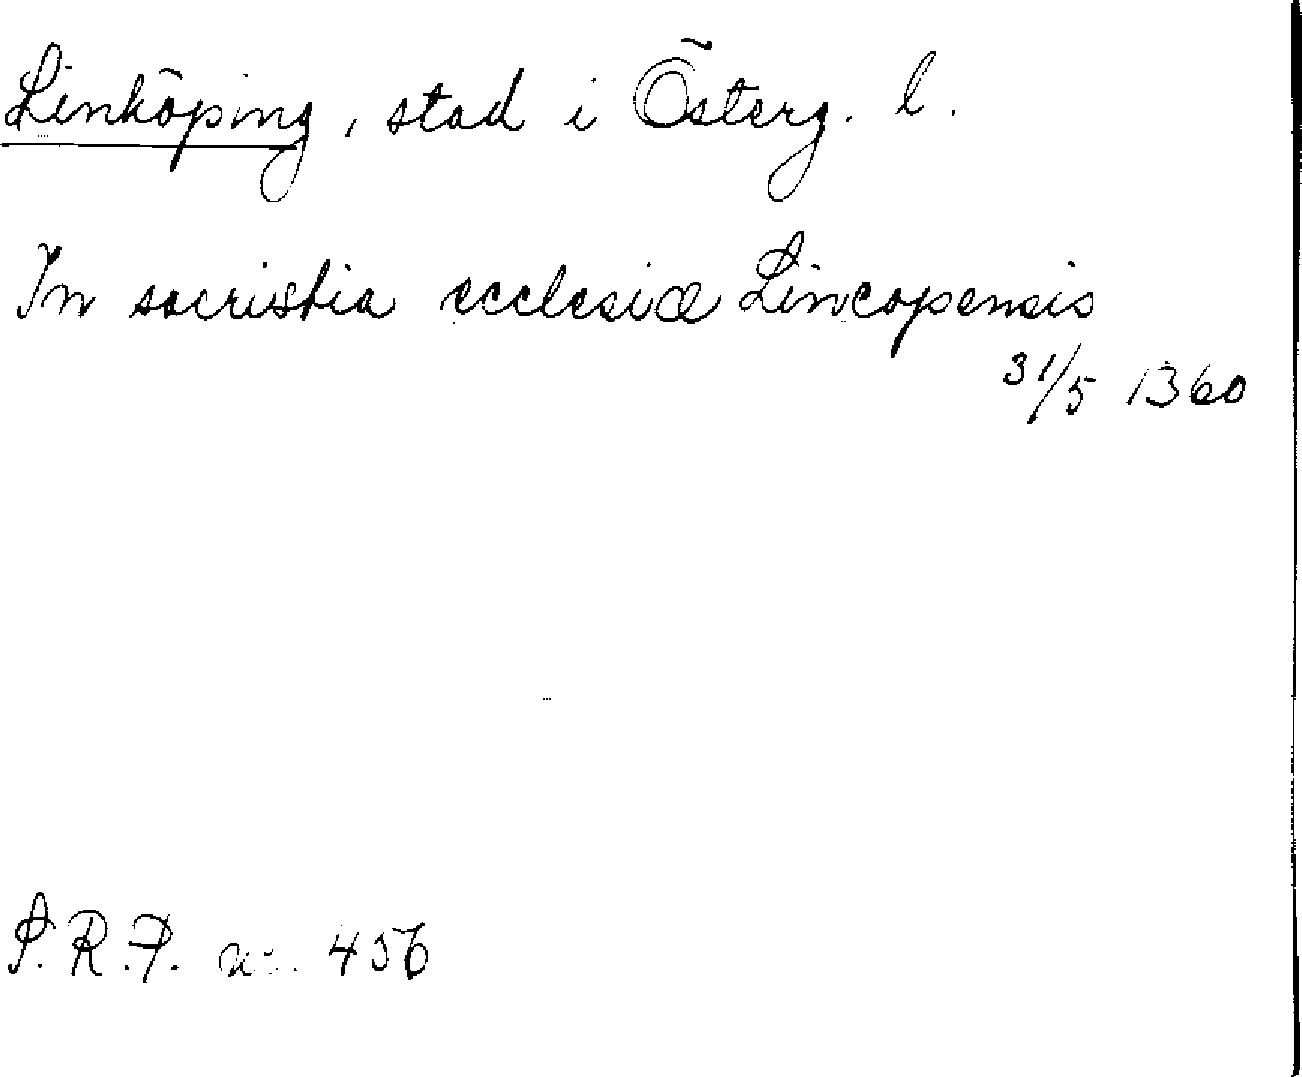 Linköping, stad i Österg. l.
In sacristia ecclesiæ Lincopensis
31/5 1360
S.R.P. nr. 456